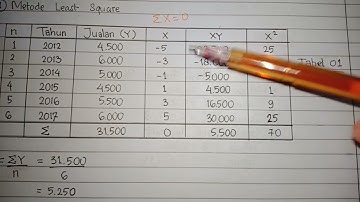 Metode Least Square
ΣX=0
n Tahun Jualan (Y) X XY X²
1 2012 4.500 -5 25
2 2013 6.000 -3
3 2014 5.000 -1 -5.000
4 2015 4.500 1 4.500 1
5 2016 5.500 3 16.500 9
6 2017 6.000 5 30.000 25
Σ 31.500 0 5.500 70
Tabel 01
= ΣY = 31.500
n 6
= 5.250